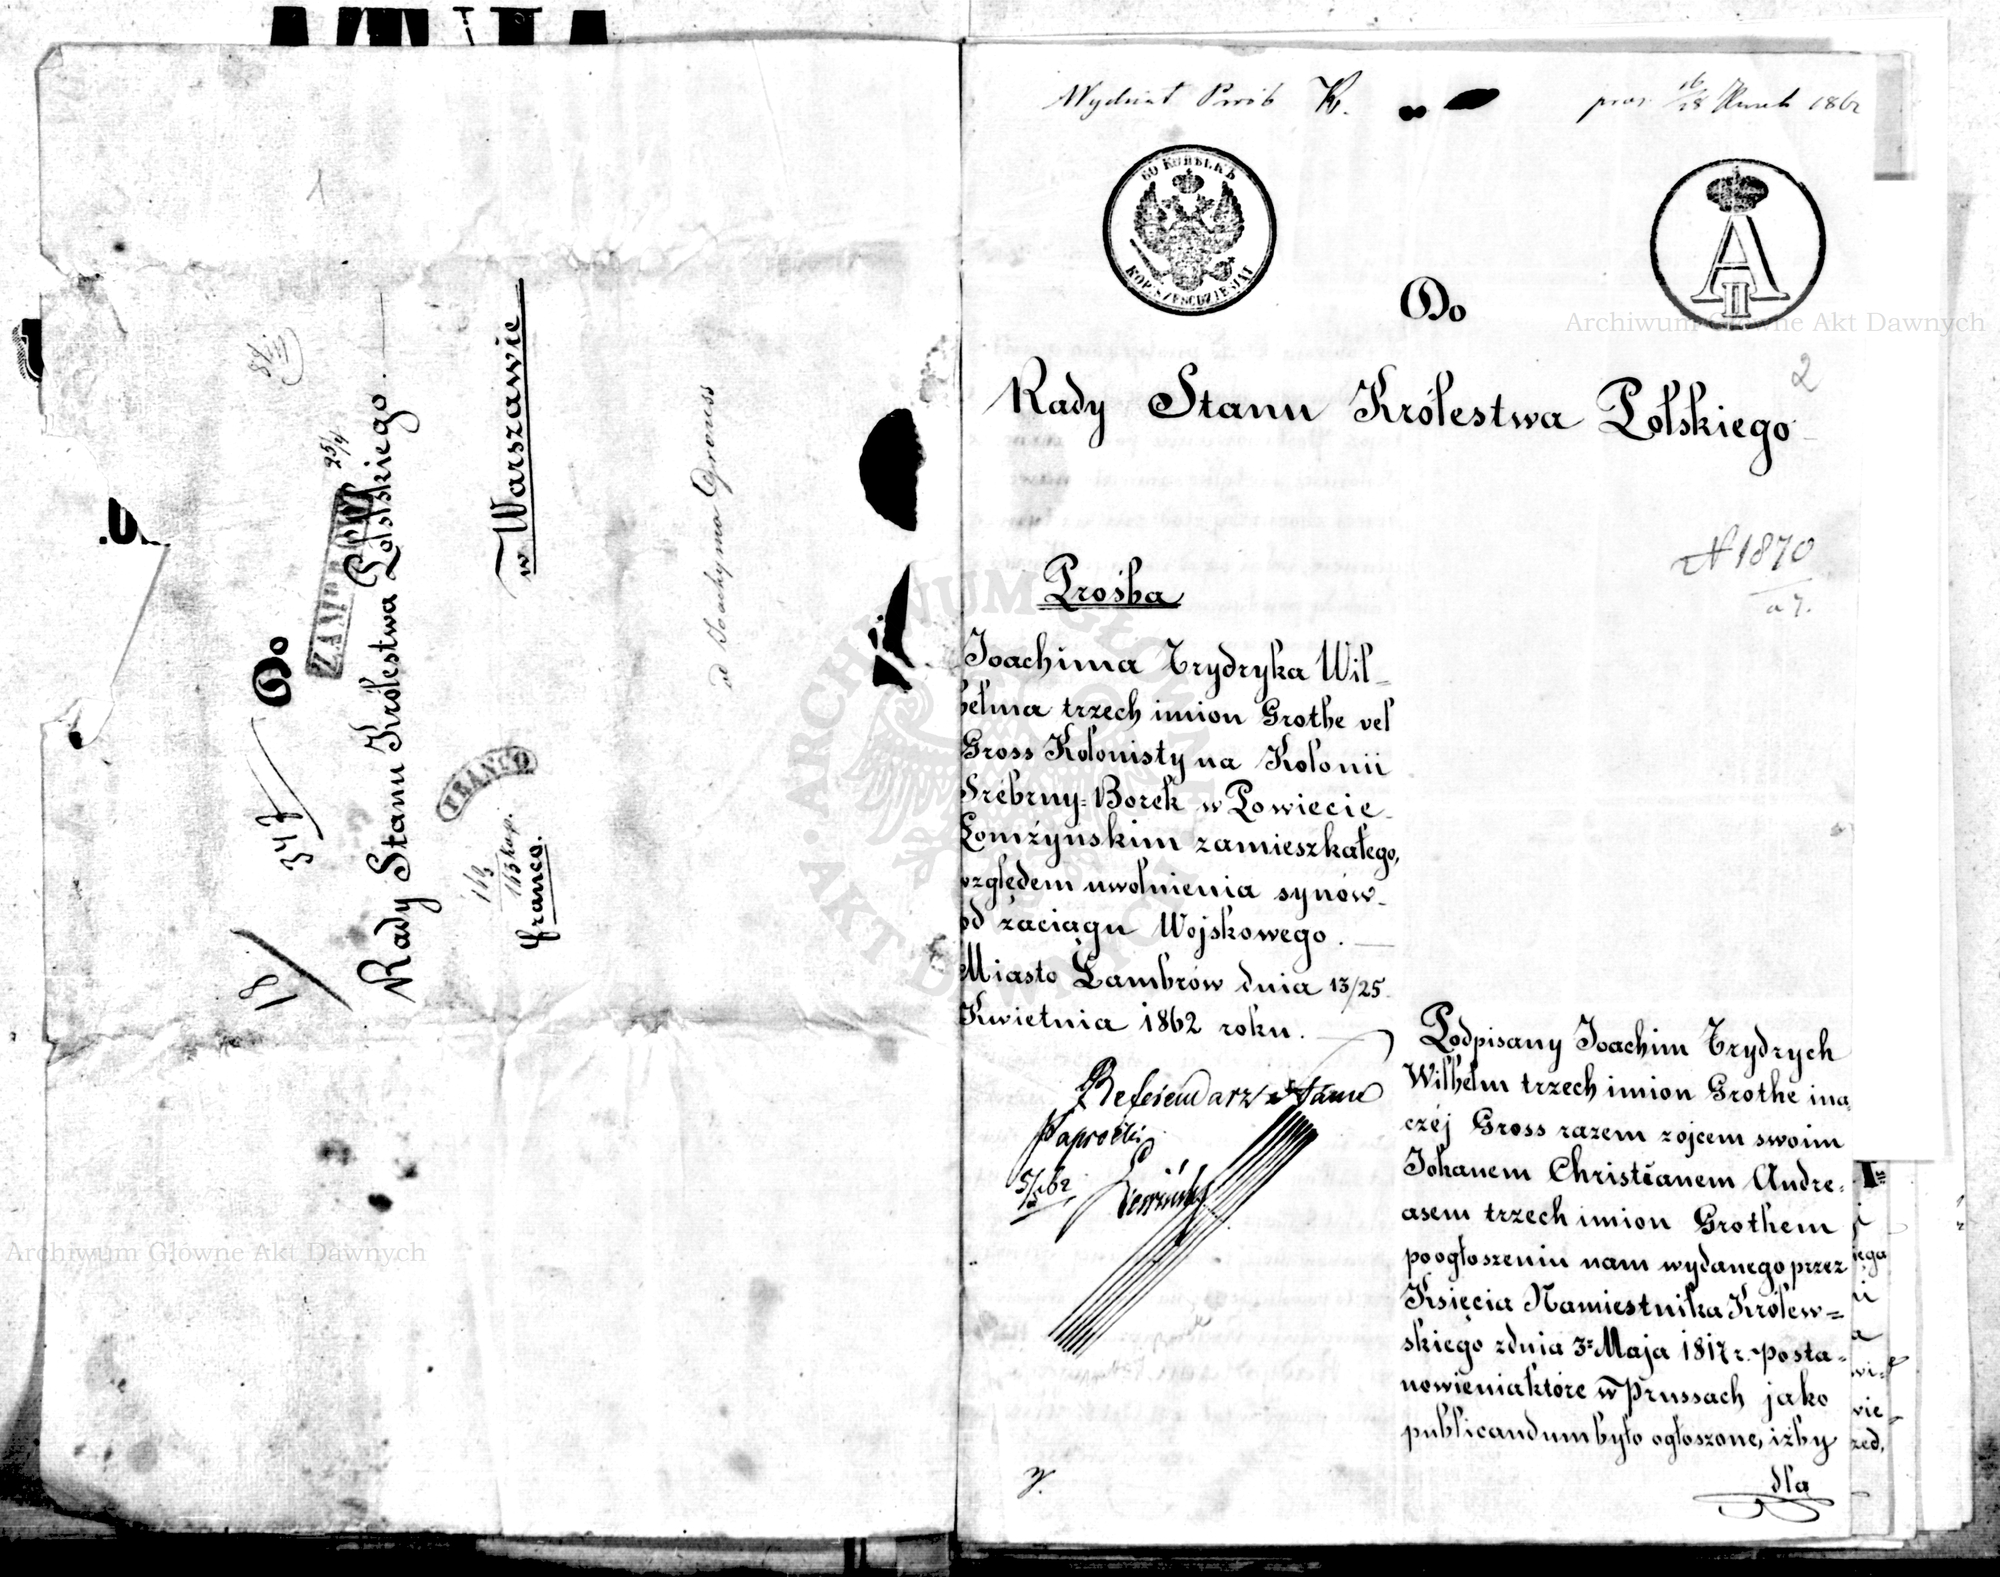 1
Do
Rady Stanu Królestwa Polskiego.
w Warszawie
ZAMBRÓW
25/4
347
18
FRANCO
163
163 kop.
franco.
od Joachyma Grouss
Wydział Próśb K.
pras 16/28 1862
60 КОПѢЕКЪ
KOP. SZEŚĆDZIESIĄT
A II
Do
Rady Stanu Królestwa Polskiego
2
N 1870
a 7.
Prośba
Joachima Frydryka Wil=
helma trzech imion Grothe vel
Gross Kolonisty na Kolonii
Srebrny=Borek w Powiecie
Łomżyńskim zamieszkałego,
względem uwolnienia synów
od zaciągu Wojskowego.
Miasto Zambrów dnia 13/25
Kwietnia 1862 roku.
Referendarz Stanu
Paprocki
5/5 62
Podpisany Joachim Frydrych
Wilhelm trzech imion Grothe ina
czéj Gross razem zojcem swoim
Johanem Christianem Andre=
asem trzech imion Grothem
poogłoszeniu nam wydanego przez
Księcia Namiestnika Królew=
skiego zdnia 3º Maja 1817 r. posta=
nowienia które w Prussach jako
publicandum było ogłoszone, iżby
dla
Archiwum Główne Akt Dawnych
Archiwum Główne Akt Dawnych
ARCHIWUM GŁÓWNE AKT DAWNYCH